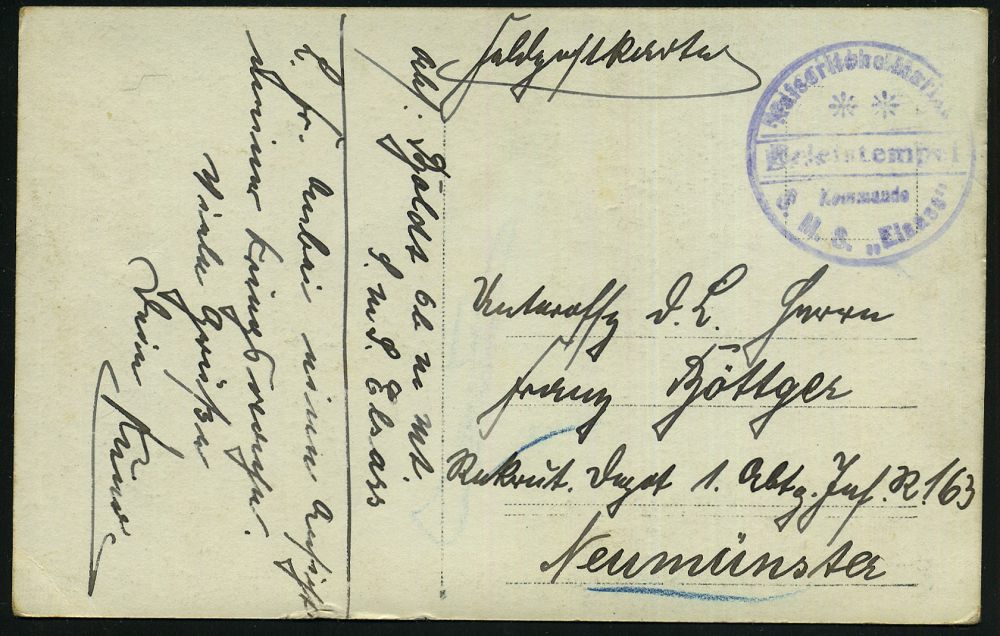 Feldpostkarte
Kaiserliche Marine
Briefstempel
Kommando
S. M. S. „Elsass"
Unteroffz d. L. Herrn
Franz Böttger
Rekrut. Depot 1. Abtg. Inf. R. 163
Neumünster
Abs.
S. M. S. Elsass
L. Fr. Anbei eine Ansicht
Viele Grüße
Dein